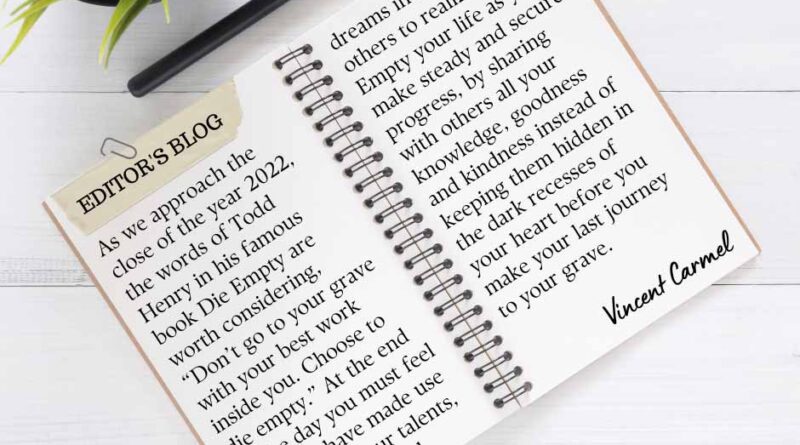 EDITOR'S BLOG
As we approach the
close of the year 2022,
the words of Todd
Henry in his famous
book Die Empty are
worth considering,
“Don’t go to your grave
with your best work
inside you. Choose to
die empty.” At the end
day you must feel
have made use
talents,
dreams in
others to
Empty your life as
make steady and secure
progress, by sharing
with others all your
knowledge, goodness
and kindness instead of
keeping them hidden in
the dark recesses of
your heart before you
make your last journey
to your grave.
Vincent Carmel